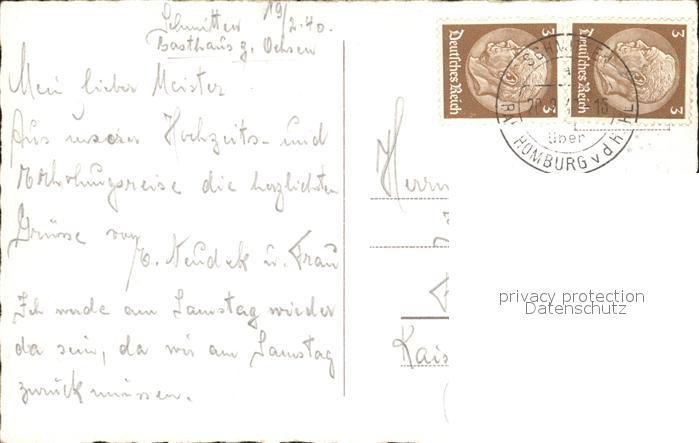 Schmitten 19/2.40.
Gasthaus z. Ochsen
Mein lieber Meister
Aus unserer Hochzeits- und
Erholungsreise die herzlichsten
Grüsse von
E. Neudek u. Frau
Ich werde am Samstag wieder
da sein, da wir am Samstag
zurück müssen.
Deutsches Reich 3 3
Deutsches Reich 3 3
SCHMITTEN
über
HOMBURG v d H
Herrn
Kais
privacy protection
Datenschutz